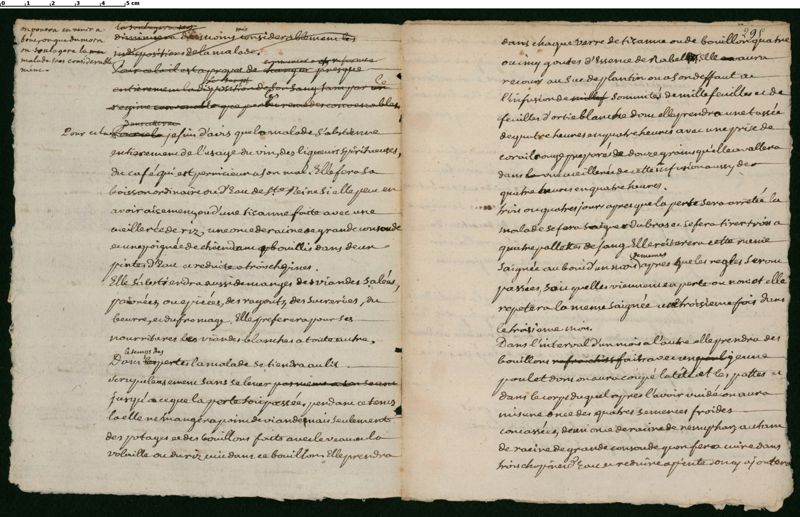 0 1 2 3 4 5 cm
on pourra en venir a
bout, ou que du moins
on soulagera la
malade tres considerable
ment.
diminuera du moins considerablement les
indispositions de la malade.
Pour cela il est a propos de changer presque
entierement la disposition de son sang tant par un
regime convenable que par
Pour cela je suis d'avis que la malade s'abstienne
entierement de l'usage du vin, des liqueurs spiritueuses,
du café qui est pernicieux a son mal. Elle fera sa
boisson ordinaire ou d'Eau de Ste Reine si elle peut en
avoir aisement, ou d'une tizanne faite avec une
cueillerée de riz, une once de racine de grande consoude
et une poignée de chiendent bouillis dans deux
pintes d'Eau et reduite a trois chopines.
Elle s'abstiendra aussi de manger des viandes salées,
poivrées, ou epicées, des ragouts, des sucreries, du
beurre, et du fromage. Elle preferera pour ses
nourritures les viandes blanches a toute autre.
Dans le temps des pertes la malade se tiendra au lit
scrupuleusement sans se lever
jusqu'a ce que la perte soit passée, pendant ce temps
la elle ne mangera point de viande mais seulement
des potages et des bouillons faits avec le veau et la
volaille ou du riz cuit dans ce bouillon. Elle prendra
298
dans chaque verre de tizanne ou de bouillon quatre
ou cinq goutes d'Essence de Rabel. Elle aura
recours au Suc de plantin ou a son deffaut a
l'infusion de sommités de millefeuilles et de
feuilles d'ortie blanche dont elle prendra une tassée
de quatre heures en quatre heures avec une prise de
corail rouge preparé de douze grains qu'elle avallera
dans une cueillerée de cette infusion aussy de
quatre heures en quatre heures.
trois ou quatre jours apres que la perte sera arretée la
malade se fera saigner du bras et se fera tirer trois a
quatre pallettes de sang. Elle reiterera cette meme
saignée au bout d'un mois apres que les regles seront
passées, soit quelles viennent en perte ou non et elle
repetera la meme saignée une troisieme fois dans
le troisieme mois.
Dans l'interval d'un mois a l'autre elle prendra des
bouillons faits avec un jeune
poulet dont on aura coupé la tête et les pattes et
dans le corps duquel apres l'avoir vuidé on aura
mis une once des quatres semences froides
concassées, demi once de racine de nenuphar, autant
de racine de grande consoude qu'on fera cuire dans
trois chopines d'Eau et reduire a pinte, on y ajoutera